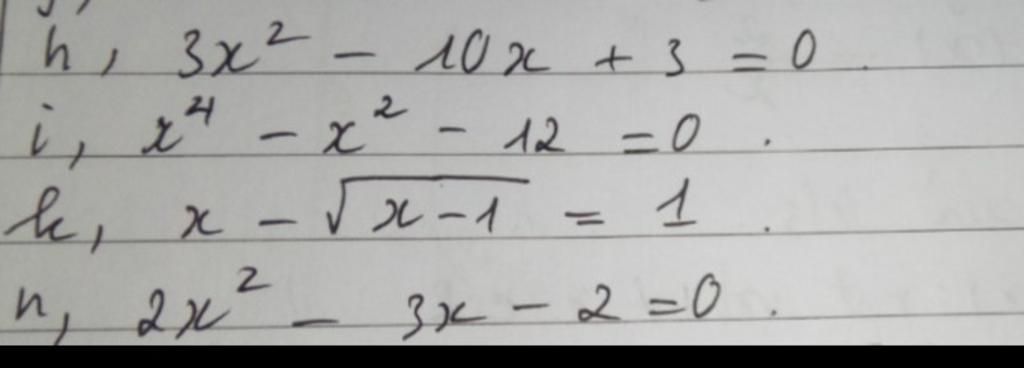 h, 3x² - 10x + 3 = 0.
i, x⁴ - x² - 12 = 0.
k, x - √(x-1) = 1.
n, 2x² - 3x - 2 = 0.